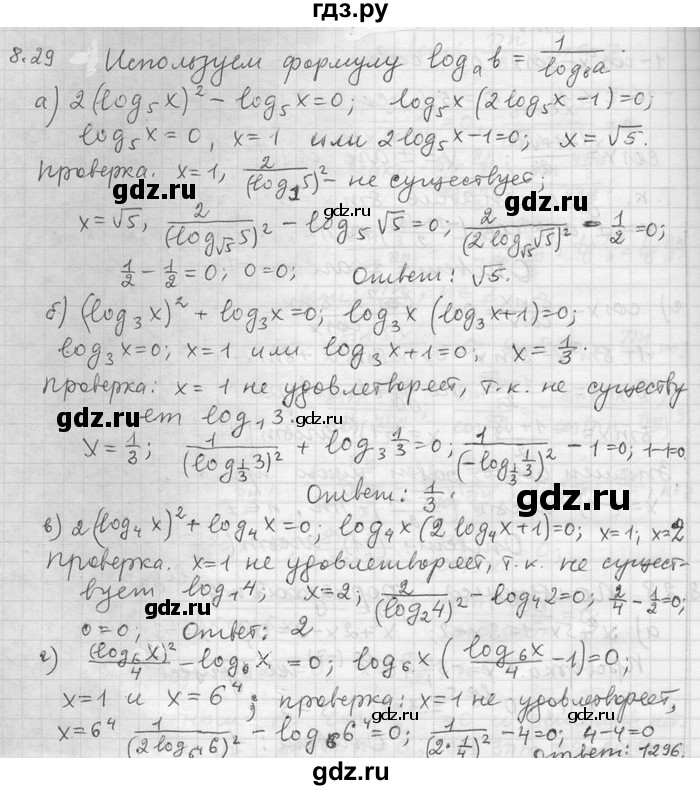 гдз.ру
8.29 Используем формулу log_a b = 1/log_b a.
а) 2(log₅x)² − log₅x = 0; log₅x (2log₅x − 1) = 0;
log₅x = 0, x = 1 или 2log₅x − 1 = 0; x = √5.
Проверка. x = 1, 2/(log₁5)² − не существует;
gdz.ru gdz.ru
x = √5, 2/(log_√5 5)² − log₅√5 = 0; 2/(2log_√5 √5)² − 1/2 = 0;
1/2 − 1/2 = 0; 0 = 0; Ответ: √5.
б) (log₃x)² + log₃x = 0; log₃x (log₃x + 1) = 0;
log₃x = 0; x = 1 или log₃x + 1 = 0; x = 1/3.
Проверка: x = 1 не удовлетворяет, т.к. не существу
gdz.ru ет log₁3.
x = 1/3; 1/(log_1/3 3)² + log₃ 1/3 = 0; 1/(−log_1/3 1/3)² − 1 = 0; 1−1=0
Ответ: 1/3. gdz.ru
в) 2(log₄x)² + log₄x = 0; log₄x (2log₄x + 1) = 0; x = 1; x = 2
Проверка. x = 1 не удовлетворяет, т.к. не сущест-
вует log₁4; x = 2; 2/(log₂4)² − log₄2 = 0; 2/4 − 1/2 = 0;
gdz.ru
0 = 0; Ответ: 2
г) (log₆x)²/4 − log₆x = 0; log₆x (log₆x/4 − 1) = 0;
x = 1 и x = 6⁴; проверка: x = 1 не удовлетворяет,
gdz.ru gdz.ru
x = 6⁴ 1/(2log_6⁴ 6)² − log₆6⁴ = 0; 1/(2·1/4)² − 4 = 0; 4−4=0
Ответ: 1296.
гдз.ру